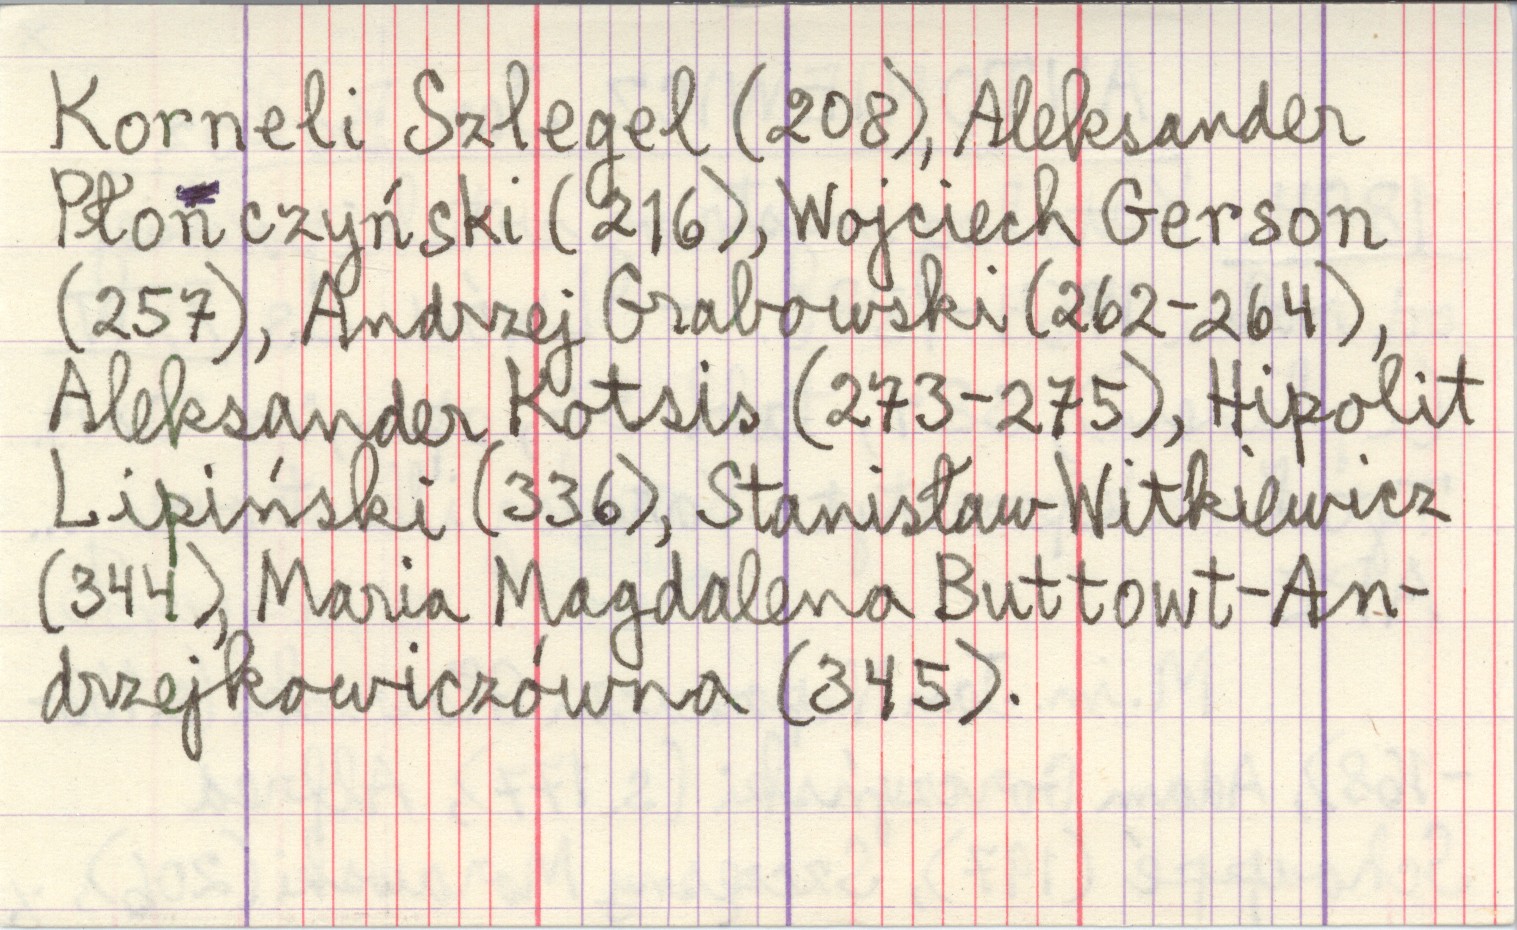 Korneli Szlegel (208), Aleksander
Płonczyński (216), Wojciech Gerson
(257), Andrzej Grabowski (262-264),
Aleksander Kotsis (273-275), Hipolit
Lipiński (336), Stanisław Witkiewicz
(344), Maria Magdalena Buttowt-An-
drzejkowiczówna (345).